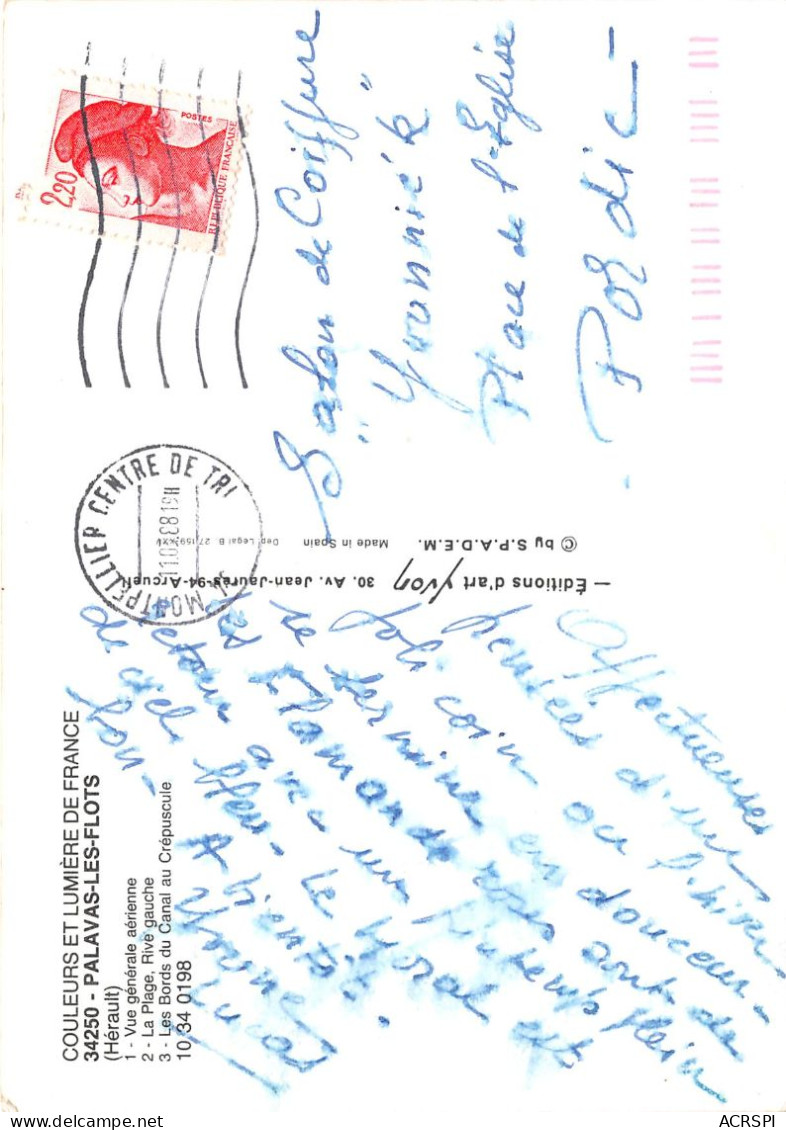 COULEURS ET LUMIÈRE DE FRANCE
34250 - PALAVAS-LES-FLOTS
(Hérault)
1 - Vue générale aérienne
2 - La Plage, Rive gauche
3 - Les Bords du Canal au Crépuscule
10 34 0198
Affectueuses
pensées d'un
joli coin ou l'hiver
se termine en douceur -
les Flamands roses sont de
retour avec un Printemps plein
de ciel bleu - Le Moral est
bon -
A bientôt.
Yvonne
Lucas
— Éditions d'art Yvon 30. Av. Jean-Jaurès-94-Arcueil
© by S.P.A.D.E.M. Made in Spain Dep. Legal B. 27.159-XXV
34 MONTPELLIER CENTRE DE TRI
19H
POSTES
2,20
REPUBLIQUE FRANÇAISE
Salon de Coiffure
"Yvannick"
Place de l'Eglise
Pordic -
ACRSPI